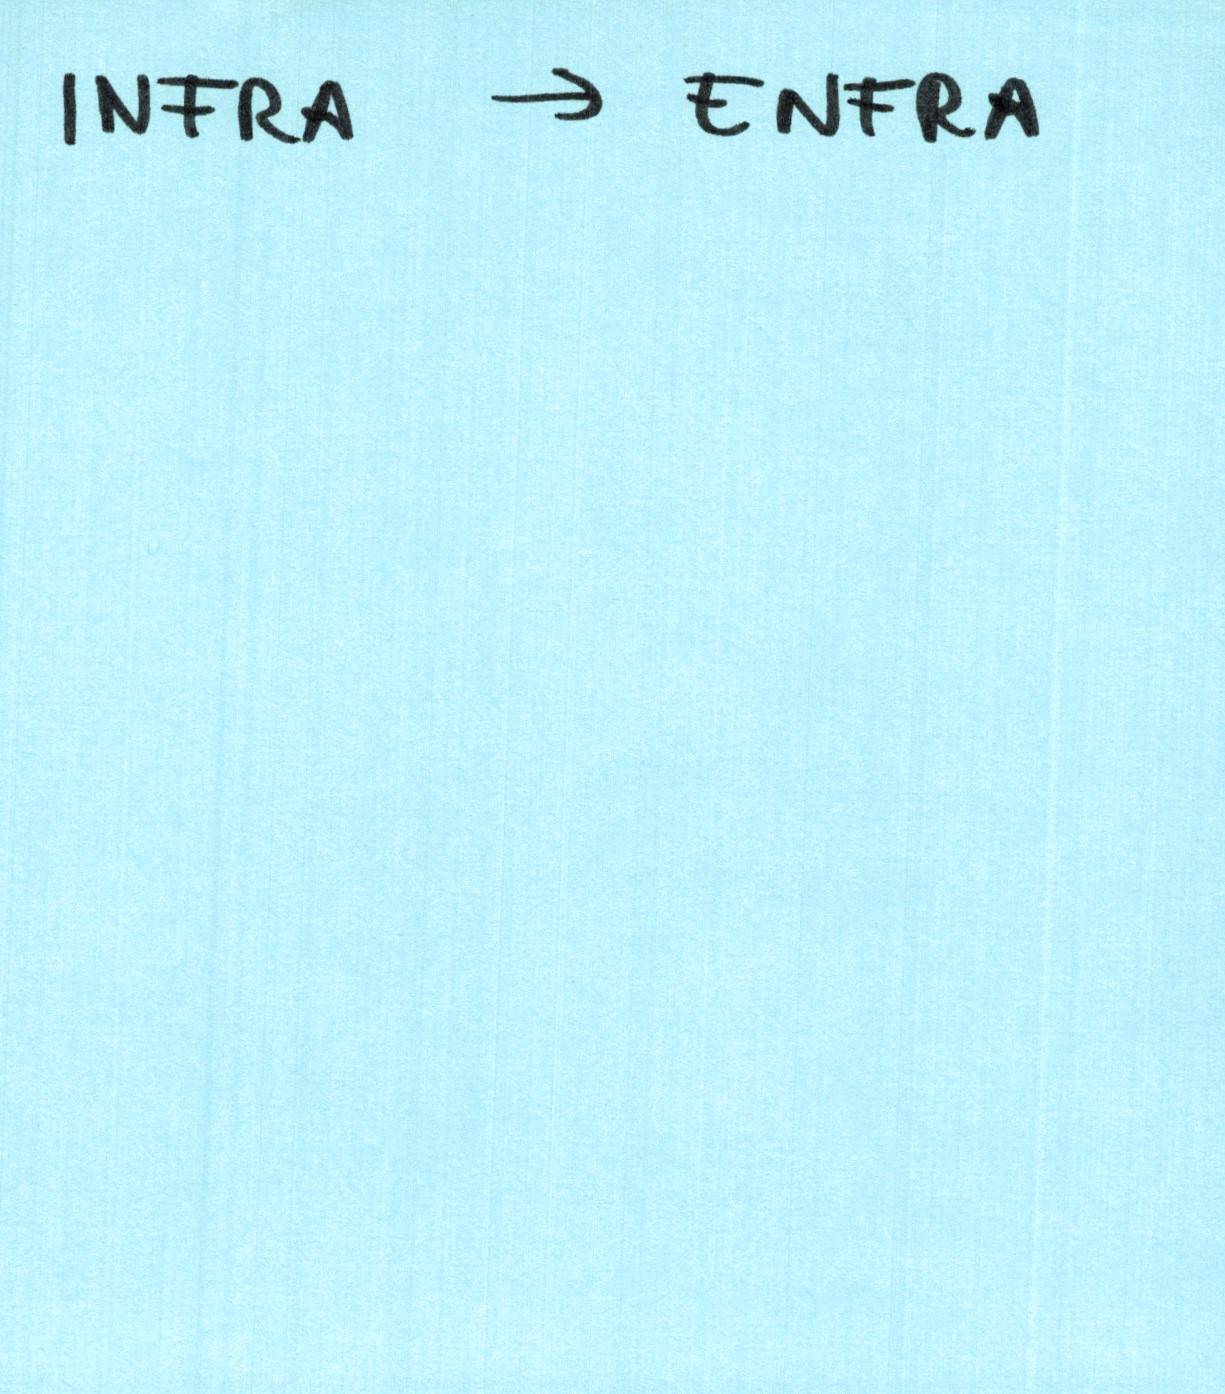 INFRA → ENFRA